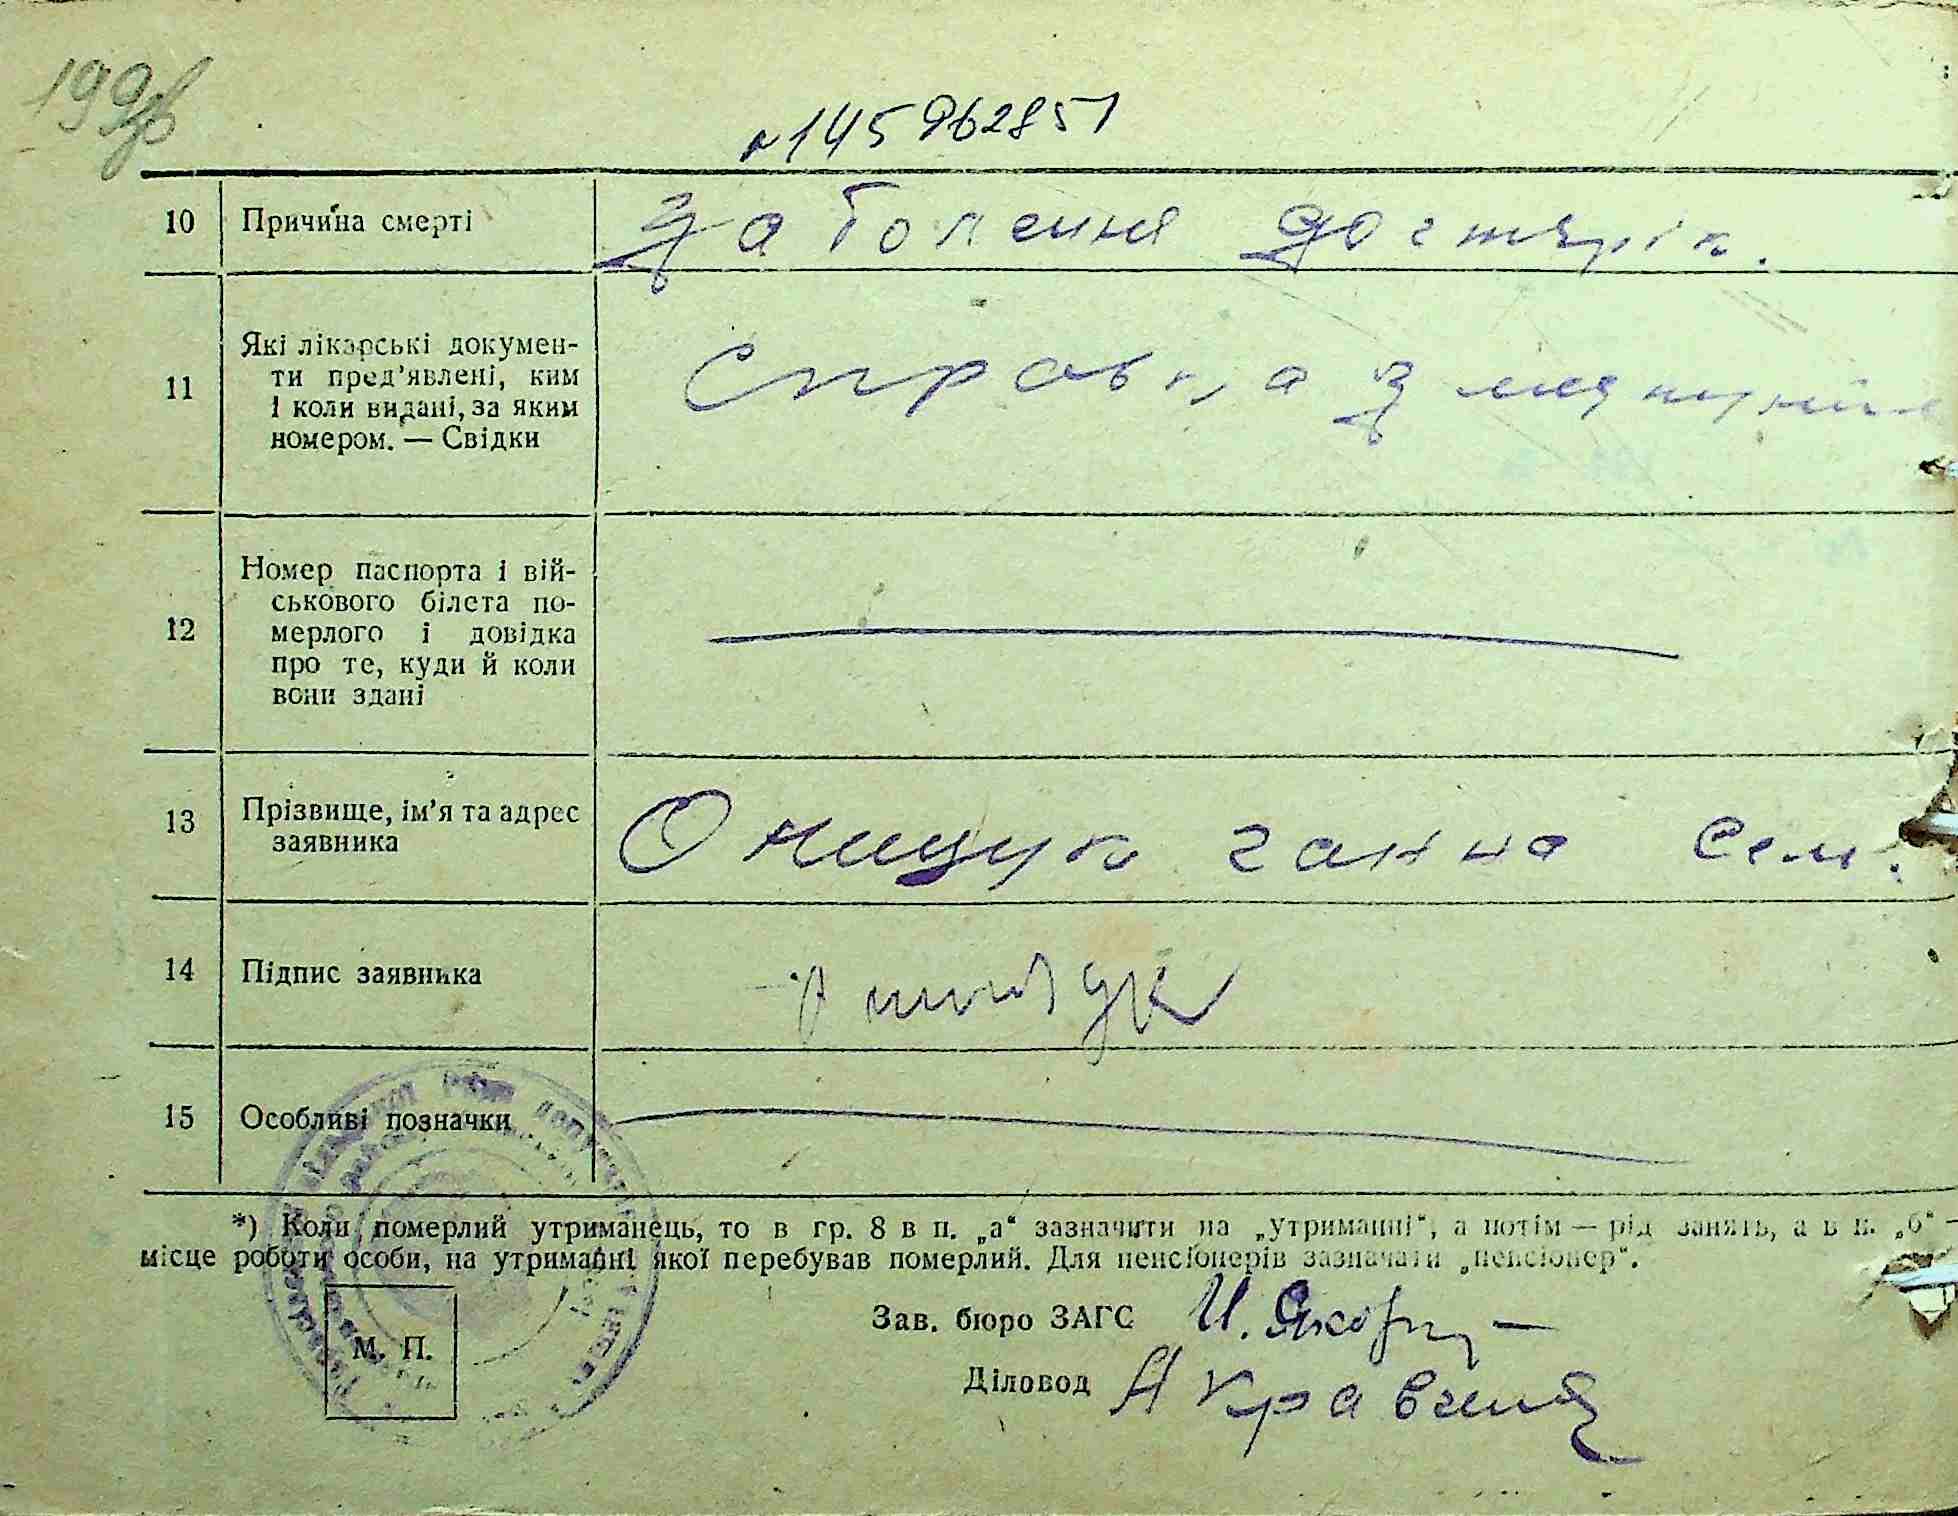 199зв
№145962851
10 Причина смерті Заболення
11 Які лікарські докумен-
ти пред'явлені, ким
і коли видані, за яким
номером. — Свідки
Справка з
12 Номер паспорта і вій-
ськового білета по-
мерлого і довідка
про те, куди й коли
вони здані
13 Прізвище, ім'я та адрес
заявника
Онищук ганна Сем.
14 Підпис заявника
15 Особливі позначки
*) Коли померлий утриманець, то в гр. 8 в п. „а“ зазначити на „утриманні“, а потім — рід занять, а в п. „б“ —
місце роботи особи, на утриманні якої перебував померлий. Для пенсіонерів зазначати „пенсіонер“.
М. П.
Зав. бюро ЗАГС И.
Діловод А Кравчинз